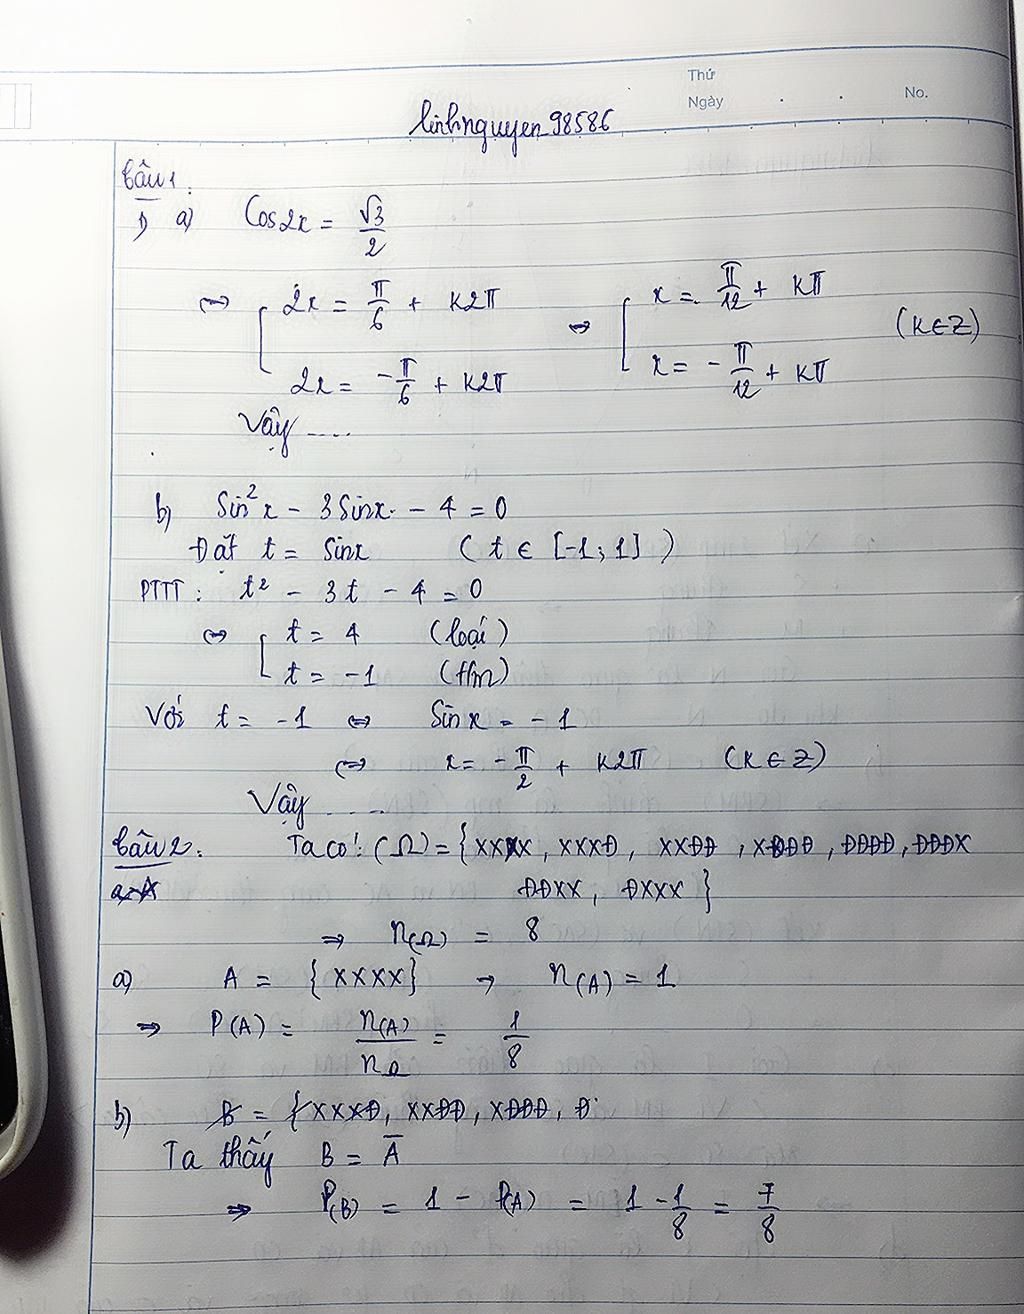 Thứ
Ngày . . No.
linhnguyen98586
Câu 1:
1) a) Cos2x = √3/2
⇔ [ 2x = π/6 + k2π ⇔ [ x = π/12 + kπ (k∈Z)
2x = -π/6 + k2π x = -π/12 + kπ
Vậy ....
b) Sin²x - 3Sinx - 4 = 0
Đặt t = Sinx (t ∈ [-1;1])
PTTT: t² - 3t - 4 = 0
⇔ [ t = 4 (loại)
t = -1 (t/m)
Với t = -1 ⇔ Sinx = -1
⇔ x = -π/2 + k2π (k∈Z)
Vậy ....
Câu 2: Ta có: (Ω) = {XXXX, XXXĐ, XXĐĐ, XĐĐĐ, ĐĐĐĐ, ĐĐĐX
ĐĐXX, ĐXXX}
⇒ n(Ω) = 8
a) A = {XXXX} → n(A) = 1
⇒ P(A) = n(A)/nΩ = 1/8
b) B = {XXXĐ, XXĐĐ, XĐĐĐ, Đ
Ta thấy B = A̅
⇒ P(B) = 1 - P(A) = 1 - 1/8 = 7/8